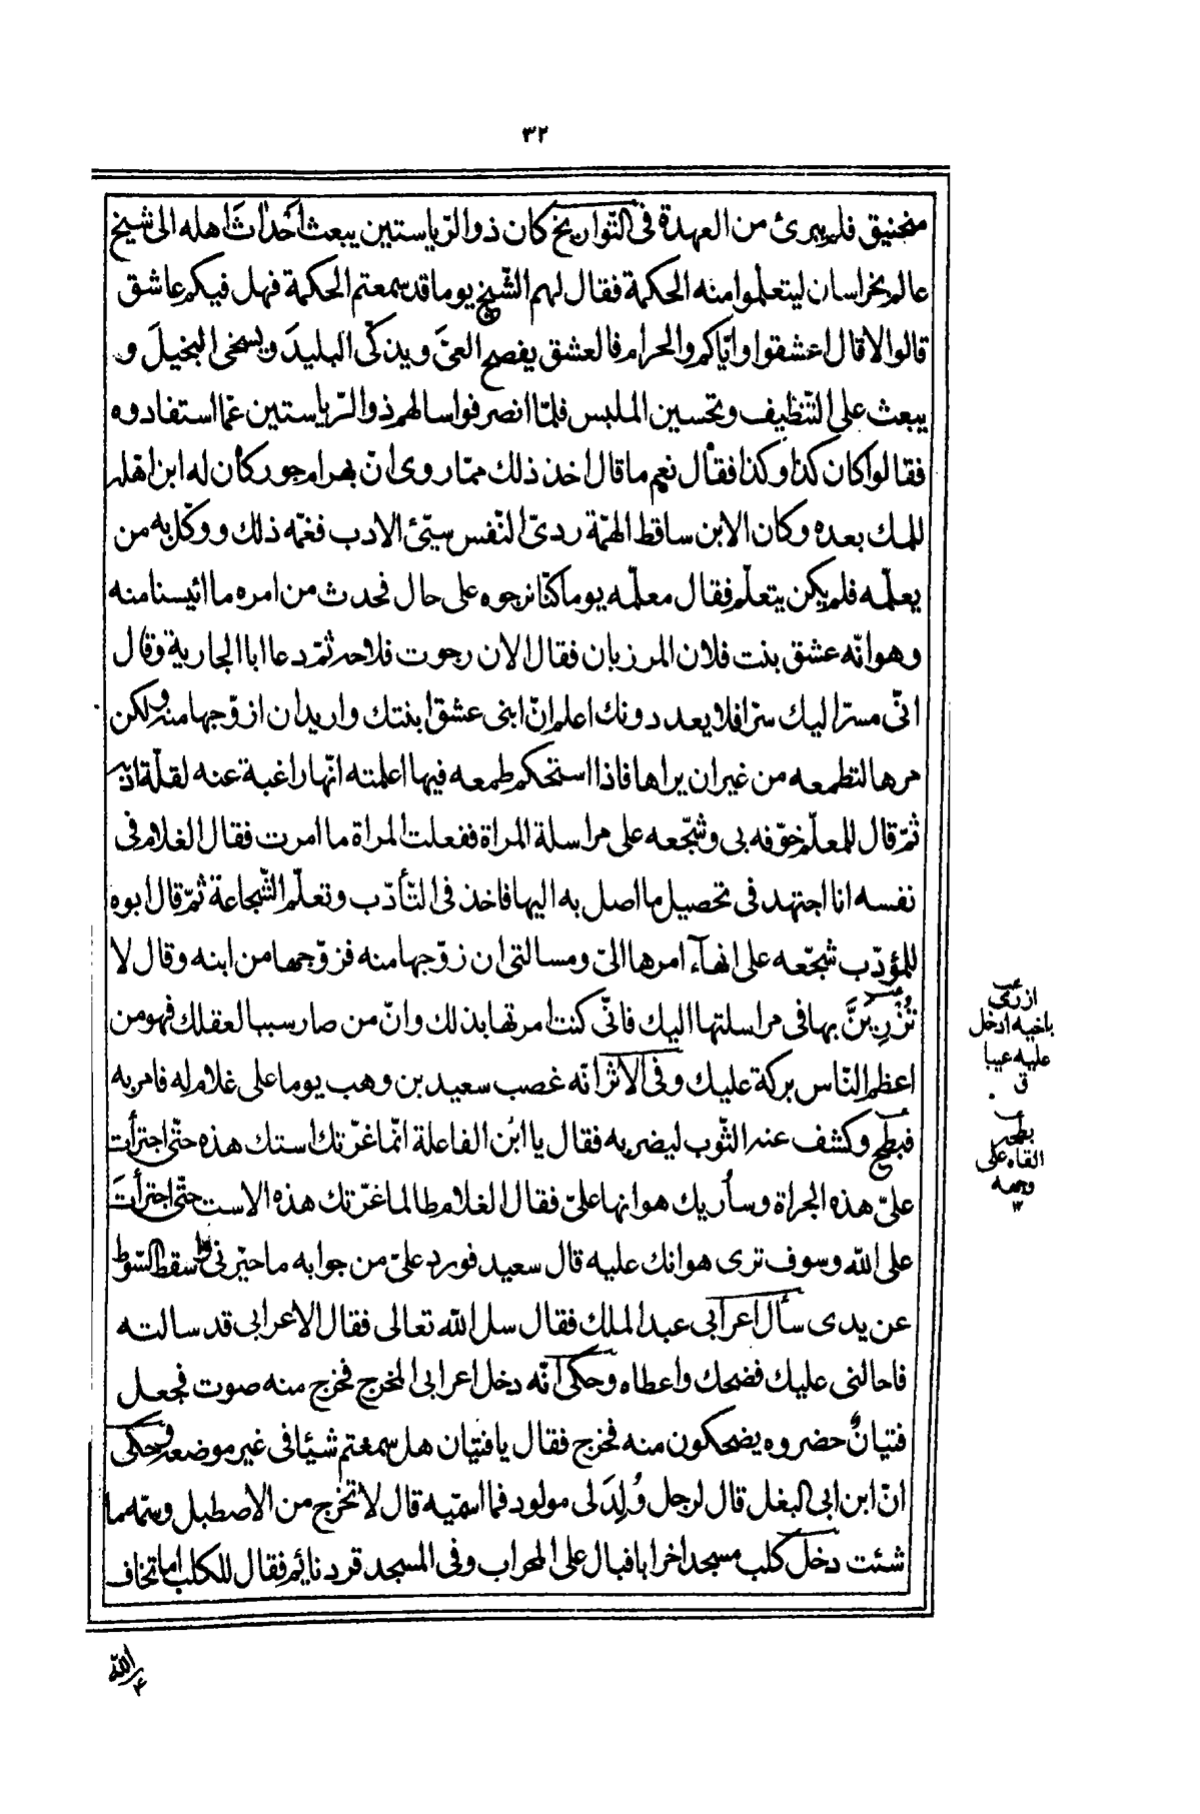 ٣٢
منجنيق فلم يبرئ من العهدة فى التّواريخ كان ذو الرّياستين يبعث أحداثَ اهله الى شيخ
عالم بخراسان ليتعلّموا منه الحكمة فقال لهم الشّيخ يوما قد سمعتم الحكمة فهل فيكم عاشق
قالوا لا قال اعشقوا وايّاكم والحرام فالعشق يفصح العىَّ ويذكّى البليدَ ويسخى البخيلَ و
يبعث على التّنظيف وتحسين الملبس فلمّا انصرفوا سالهم ذو الرّياستين عمّا استفادوه
فقالوا كان كذا وكذا فقال نعم ما قال اخذ ذلك ممّا روى انّ بهرام جور كان له ابن اهّله
للملك بعده وكان الابن ساقط الهمّة ردىّ النّفس سيّئ الادب فغمّه ذلك ووكّل به من
يعلّمه فلم يكن يتعلّم فقال معلّمه يوما كنّا نرجوه على حال فحدث من امره ما ائيسنا منه
وهو انّه عشق بنت فلان المرزبان فقال الان رجوت فلاحه ثمّ دعا ابا الجارية وقال
انّى مسرّ اليك سرّا فلا يعددونك اعلم انّ ابنى عشق ابنتك واريد ان ازوّجها منه ولكن
مرها لتطمعه من غير ان يراها فاذا استحكم طمعه فيها اعلمته انّها راغبة عنه لقلّة ادبه
ثمّ قال للمعلّم خوّفه بى وشجّعه على مراسلة المراة ففعلت المراة ما امرت فقال الغلام فى
نفسه انا اجتهد فى تحصيل ما اصل به اليها فاخذ فى التّأدّب وتعلّم الشّجاعة ثمّ قال ابوه
للمؤدّب شجّعه على انهآء امرها الىّ ومسالتى ان زوّجها منه فزوّجها من ابنه وقال لا
تُزْرِيَنَّ بها فى مراسلتها اليك فانّى كنت امرتها بذلك وانّ من صار سببا لعقلك فهو من
اعظم النّاس بركة عليك وفى الاثر انّه غصب سعيد بن وهب يوما على غلام له فامر به
فبطح وكشف عنه الثّوب ليضربه فقال يا ابن الفاعلة انّما غرّتك استك هذه حتّى اجترأت
علىّ هذه الجراة وسأريك هوانها علىّ فقال الغلام طالما غرّتك هذه الاست حتّى اجترأتَ
على اللّه وسوف ترى هوانك عليه قال سعيد فورد علىّ من جوابه ما حيّرنى واسقط السّوط
عن يدى سأل اعرابى عبد الملك فقال سل اللّه تعالى فقال الاعرابى قد سالته
فاحالنى عليك فضحك واعطاه وحكى انّه دخل اعرابى المخرج فخرج منه صوت فجعل
فتيانٌ حضروه يضحكون منه فخرج فقال يا فتيان هل سمعتم شيئا فى غير موضعه وحكى
انّ ابن ابى البغل قال لرجل وُلِدَ لى مولود فما اسمّيه قال لا تخرج من الاصطبل وسمّه ما
شئت دخل كلب مسجدا خرابا فبال على المحراب وفى المسجد قرد نائم فقال للكلب اما تخاف
ازرى
باخيه ادخل
عليه عيبا
ق
بطحه
القاه على
وجهه
١٢
اللّه